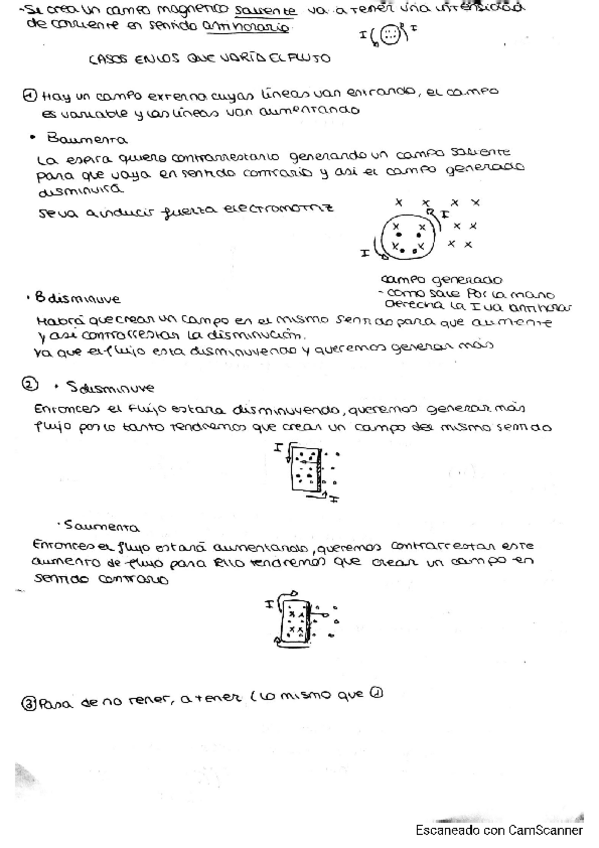 -Se crea un campo magnetico saliente va a tener una intensidad
de corriente en sentido antihorario.
I I
CASOS EN LOS QUE VARÍA EL FLUJO
① Hay un campo externo cuyas líneas van entrando, el campo
es variable y las líneas van aumentando
• B aumenta
La espira quiere contrarrestarlo generando un campo saliente
para que vaya en sentido contrario y así el campo generado
disminuirá
Se va a inducir fuerza electromotriz
x x x x
I
x x x x
x x x x
I
campo generado
- como sale por la mano
derecha la I va antihorar
• B disminuye
Habrá que crear un campo en el mismo sentido para que aumente
y así contrarrestar la disminución.
ya que el flujo esta disminuyendo y queremos generar más
② • S disminuye
Entonces el flujo estara disminuyendo, queremos generar más
flujo por lo tanto tendremos que crear un campo del mismo sentido
I
I
• S aumenta
Entonces el flujo estará aumentando, queremos contrarrestar este
aumento de flujo para ello tendremos que crear un campo en
sentido contrario
I
x x
x x
③ Pasa de no tener, a tener (lo mismo que ①
Escaneado con CamScanner